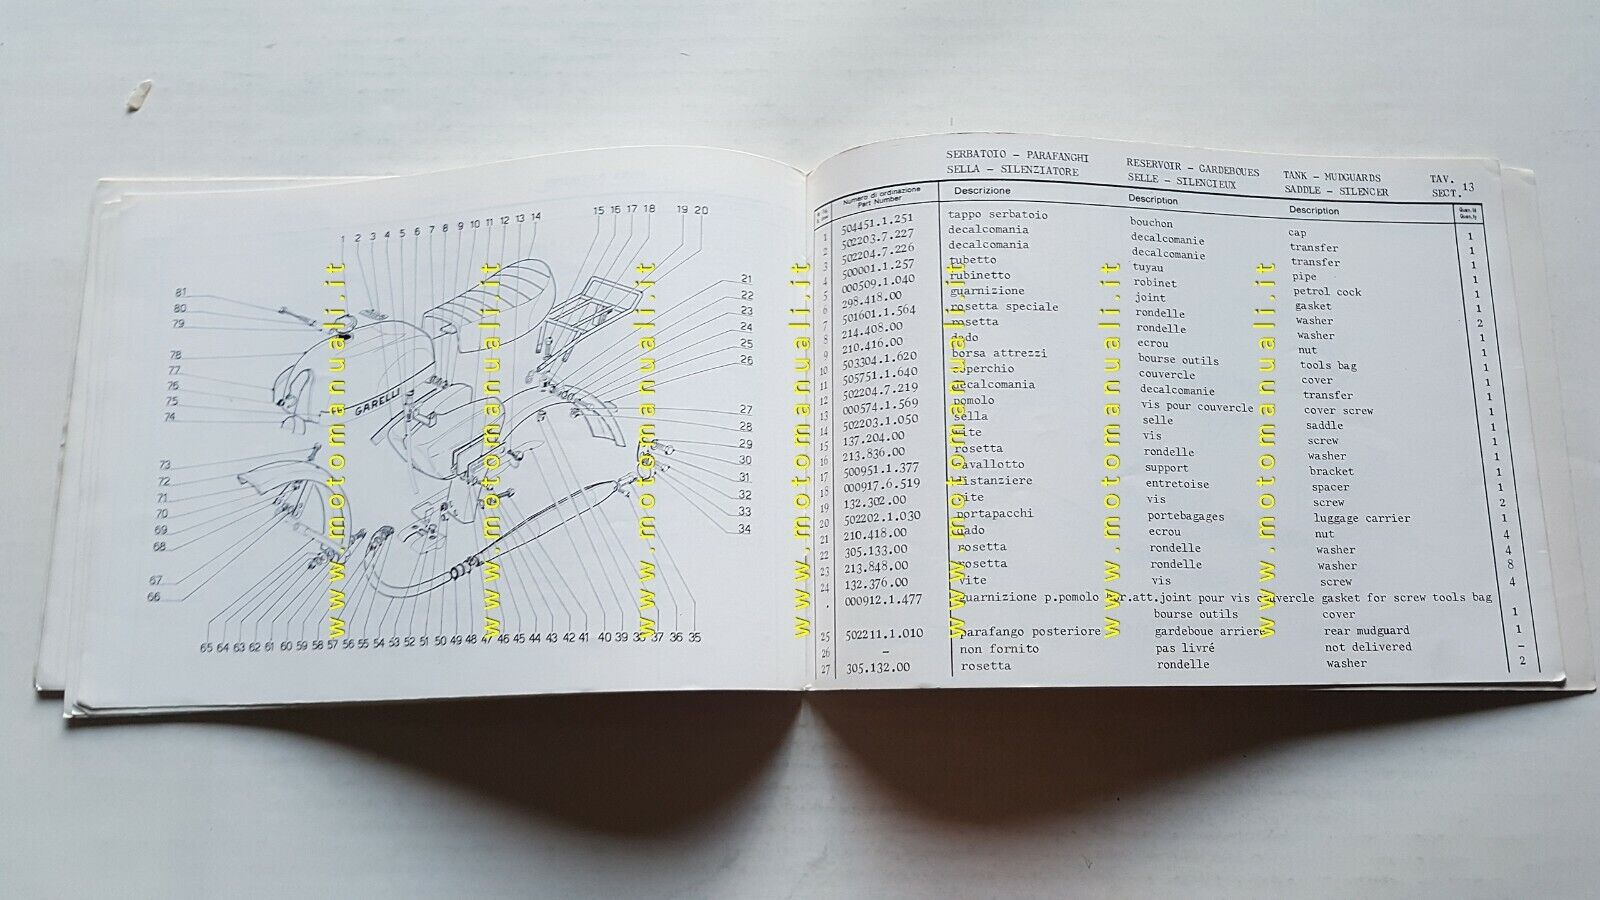 1 2 3 4 5 6 7 8 9 10 11 12 13 14 15 16 17 18 19 20
21
22
23
24
25
26
27
28
29
30
31
32
33
34
81
80
79
78
77
76
75
74
73
72
71
70
69
68
67
66
GARELLI
65 64 63 62 61 60 59 58 57 56 55 54 53 52 51 50 49 48 47 46 45 44 43 42 41 40 39 38 37 36 35
www.motomanuali.it
www.motomanuali.it
www.motomanuali.it
www.motomanuali.it
www.motomanuali.it
www.motomanuali.it
www.motomanuali.it
SERBATOIO - PARAFANGHI RESERVOIR - GARDEBOUES TANK - MUDGUARDS TAV.
SELLA - SILENZIATORE SELLE - SILENCIEUX SADDLE - SILENCER SECT. 13
Numero di ordinazione Descrizione Description Description
Part Number
1 504451.1.251 tappo serbatoio bouchon cap 1
2 502203.7.227 decalcomania decalcomanie transfer 1
3 502204.7.226 decalcomania decalcomanie transfer 1
4 500001.1.257 tubetto tuyau pipe 1
5 000509.1.040 rubinetto robinet petrol cock 1
6 298.418.00 guarnizione joint gasket 1
7 501601.1.564 rosetta speciale rondelle washer 2
8 214.408.00 rosetta rondelle washer 1
9 210.416.00 dado ecrou nut 1
10 503304.1.620 borsa attrezzi bourse outils tools bag 1
11 505751.1.640 coperchio couvercle cover 1
12 502204.7.219 decalcomania decalcomanie transfer 1
13 000574.1.569 pomolo vis pour couvercle cover screw 1
14 502203.1.050 sella selle saddle 1
15 137.204.00 vite vis screw 1
16 213.836.00 rosetta rondelle washer 1
17 500951.1.377 cavallotto support bracket 1
18 000917.6.519 distanziere entretoise spacer 1
19 132.302.00 vite vis screw 2
20 502202.1.030 portapacchi portebagages luggage carrier 1
21 210.418.00 dado ecrou nut 4
22 305.133.00 rosetta rondelle washer 4
23 213.848.00 rosetta rondelle washer 8
24 132.376.00 vite vis screw 4
. 000912.1.477 guarnizione p.pomolo bor.att.joint pour vis couvercle gasket for screw tools bag
bourse outils cover 1
25 502211.1.010 parafango posteriore gardeboue arriere rear mudguard 1
26 - non fornito pas livré not delivered -
27 305.132.00 rosetta rondelle washer 2